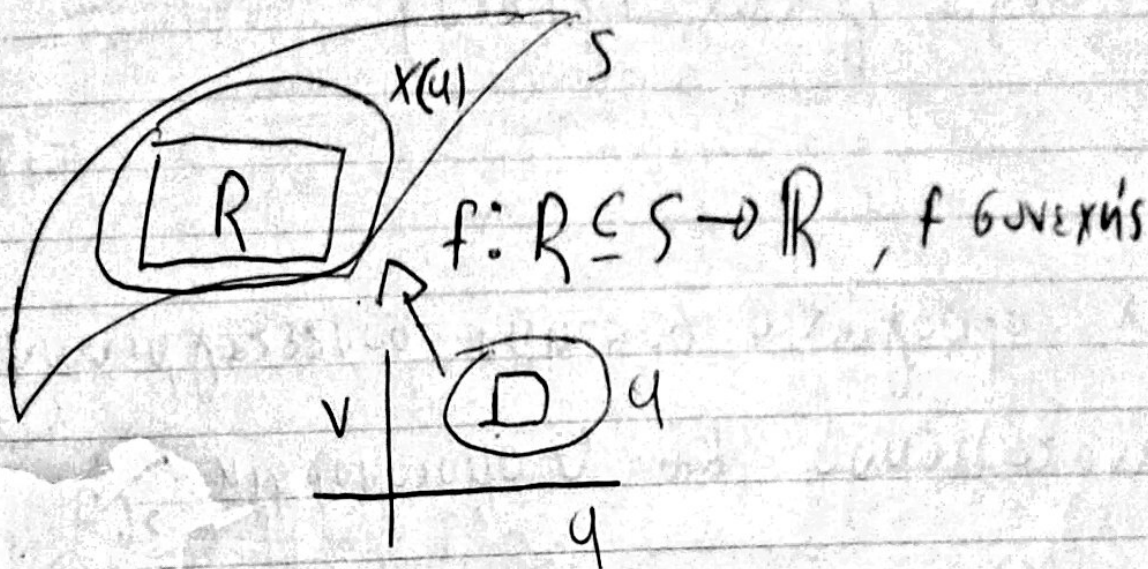 S
X(u)
R
f: R ⊆ S → ℝ, f συνεχής
v
u
u